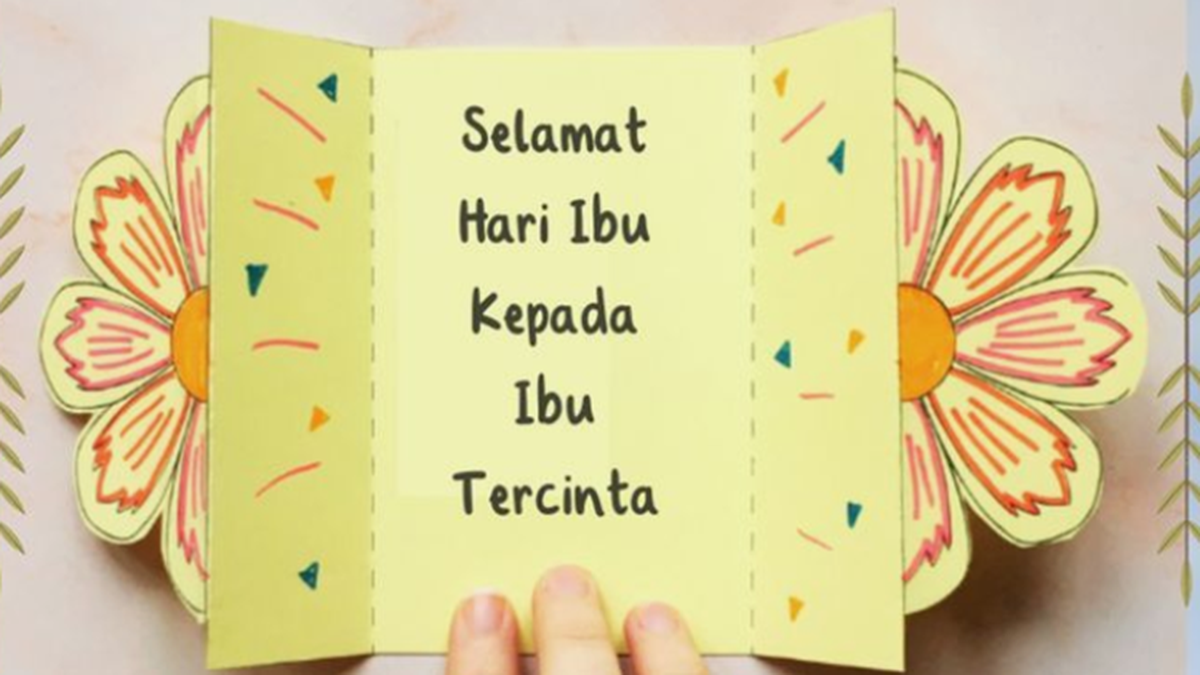 Selamat
Hari Ibu
Kepada
Ibu
Tercinta